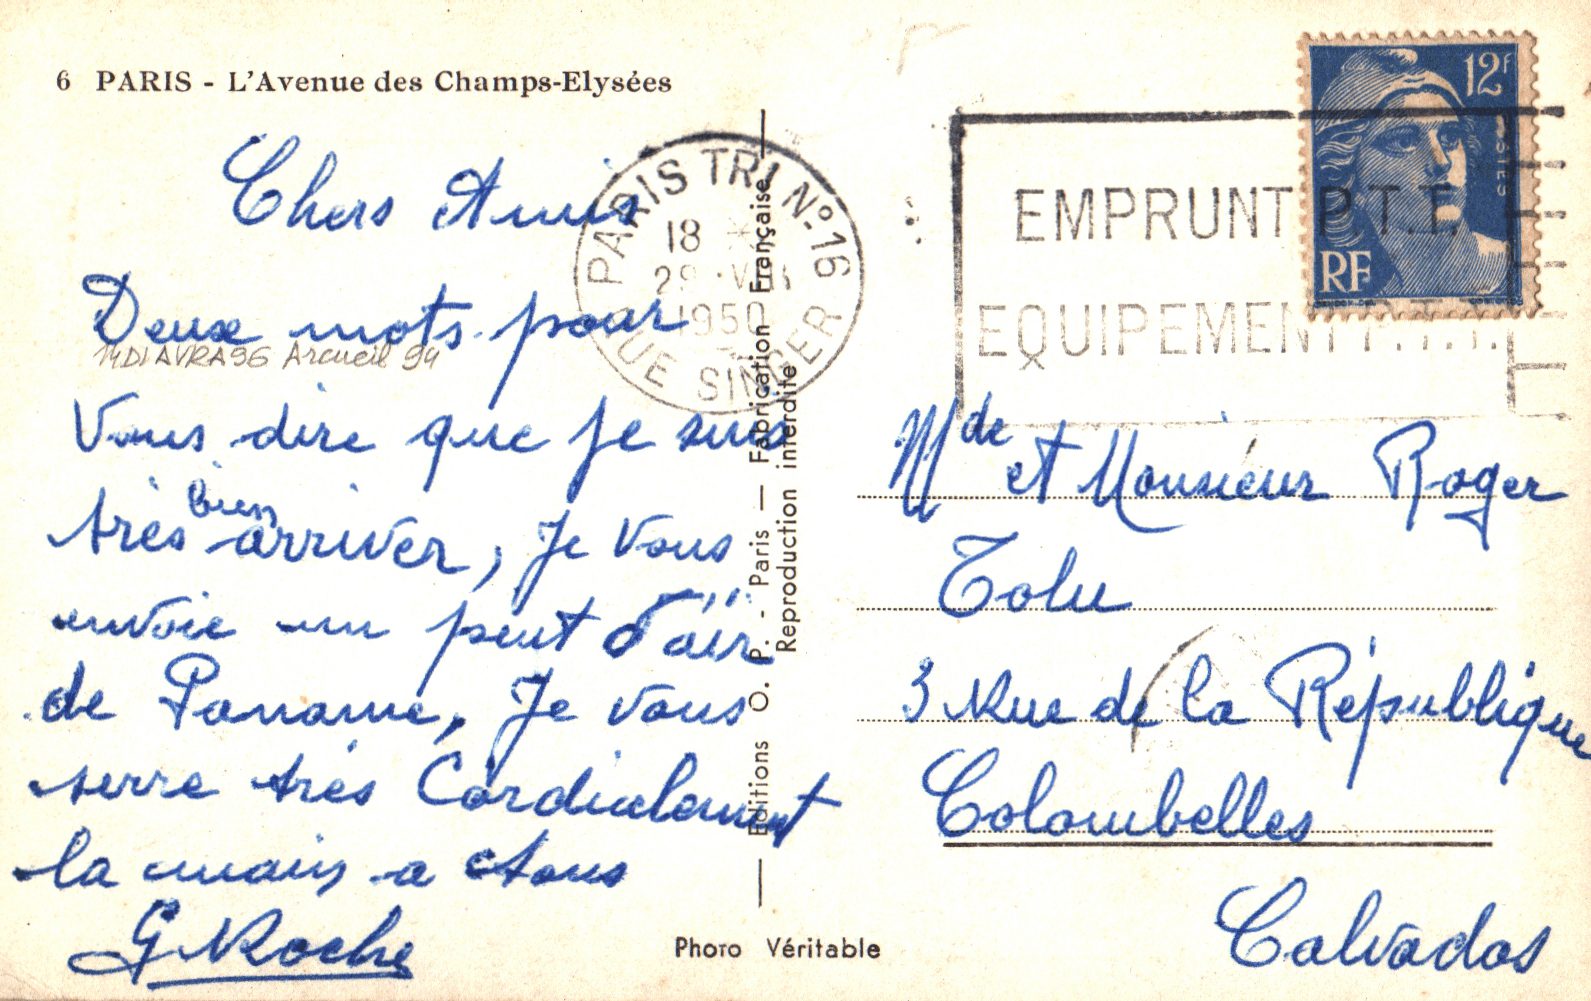 6 PARIS - L'Avenue des Champs-Elysées
Chers Amis
Deux mots pour
Vous dire que je suis
très bien arriver, je vous
envoie un peut d'air
de Paname, Je vous
serre très Cordialement
la main a tous
G Roche
14 DI AVRA 96 Arcueil 94
PARIS TRI Nº 16
18 *
29 · VIII
1950
RUE SINGER
Editions O. P. - Paris — Fabrication Française
Reproduction interdite
Photo Véritable
EMPRUNT P.T.T.
EQUIPEMENT P.T.T.
12F
POSTES
RF
Mde et Monsieur Roger
Tolu
3 Rue de la République
Colombelles
Calvados